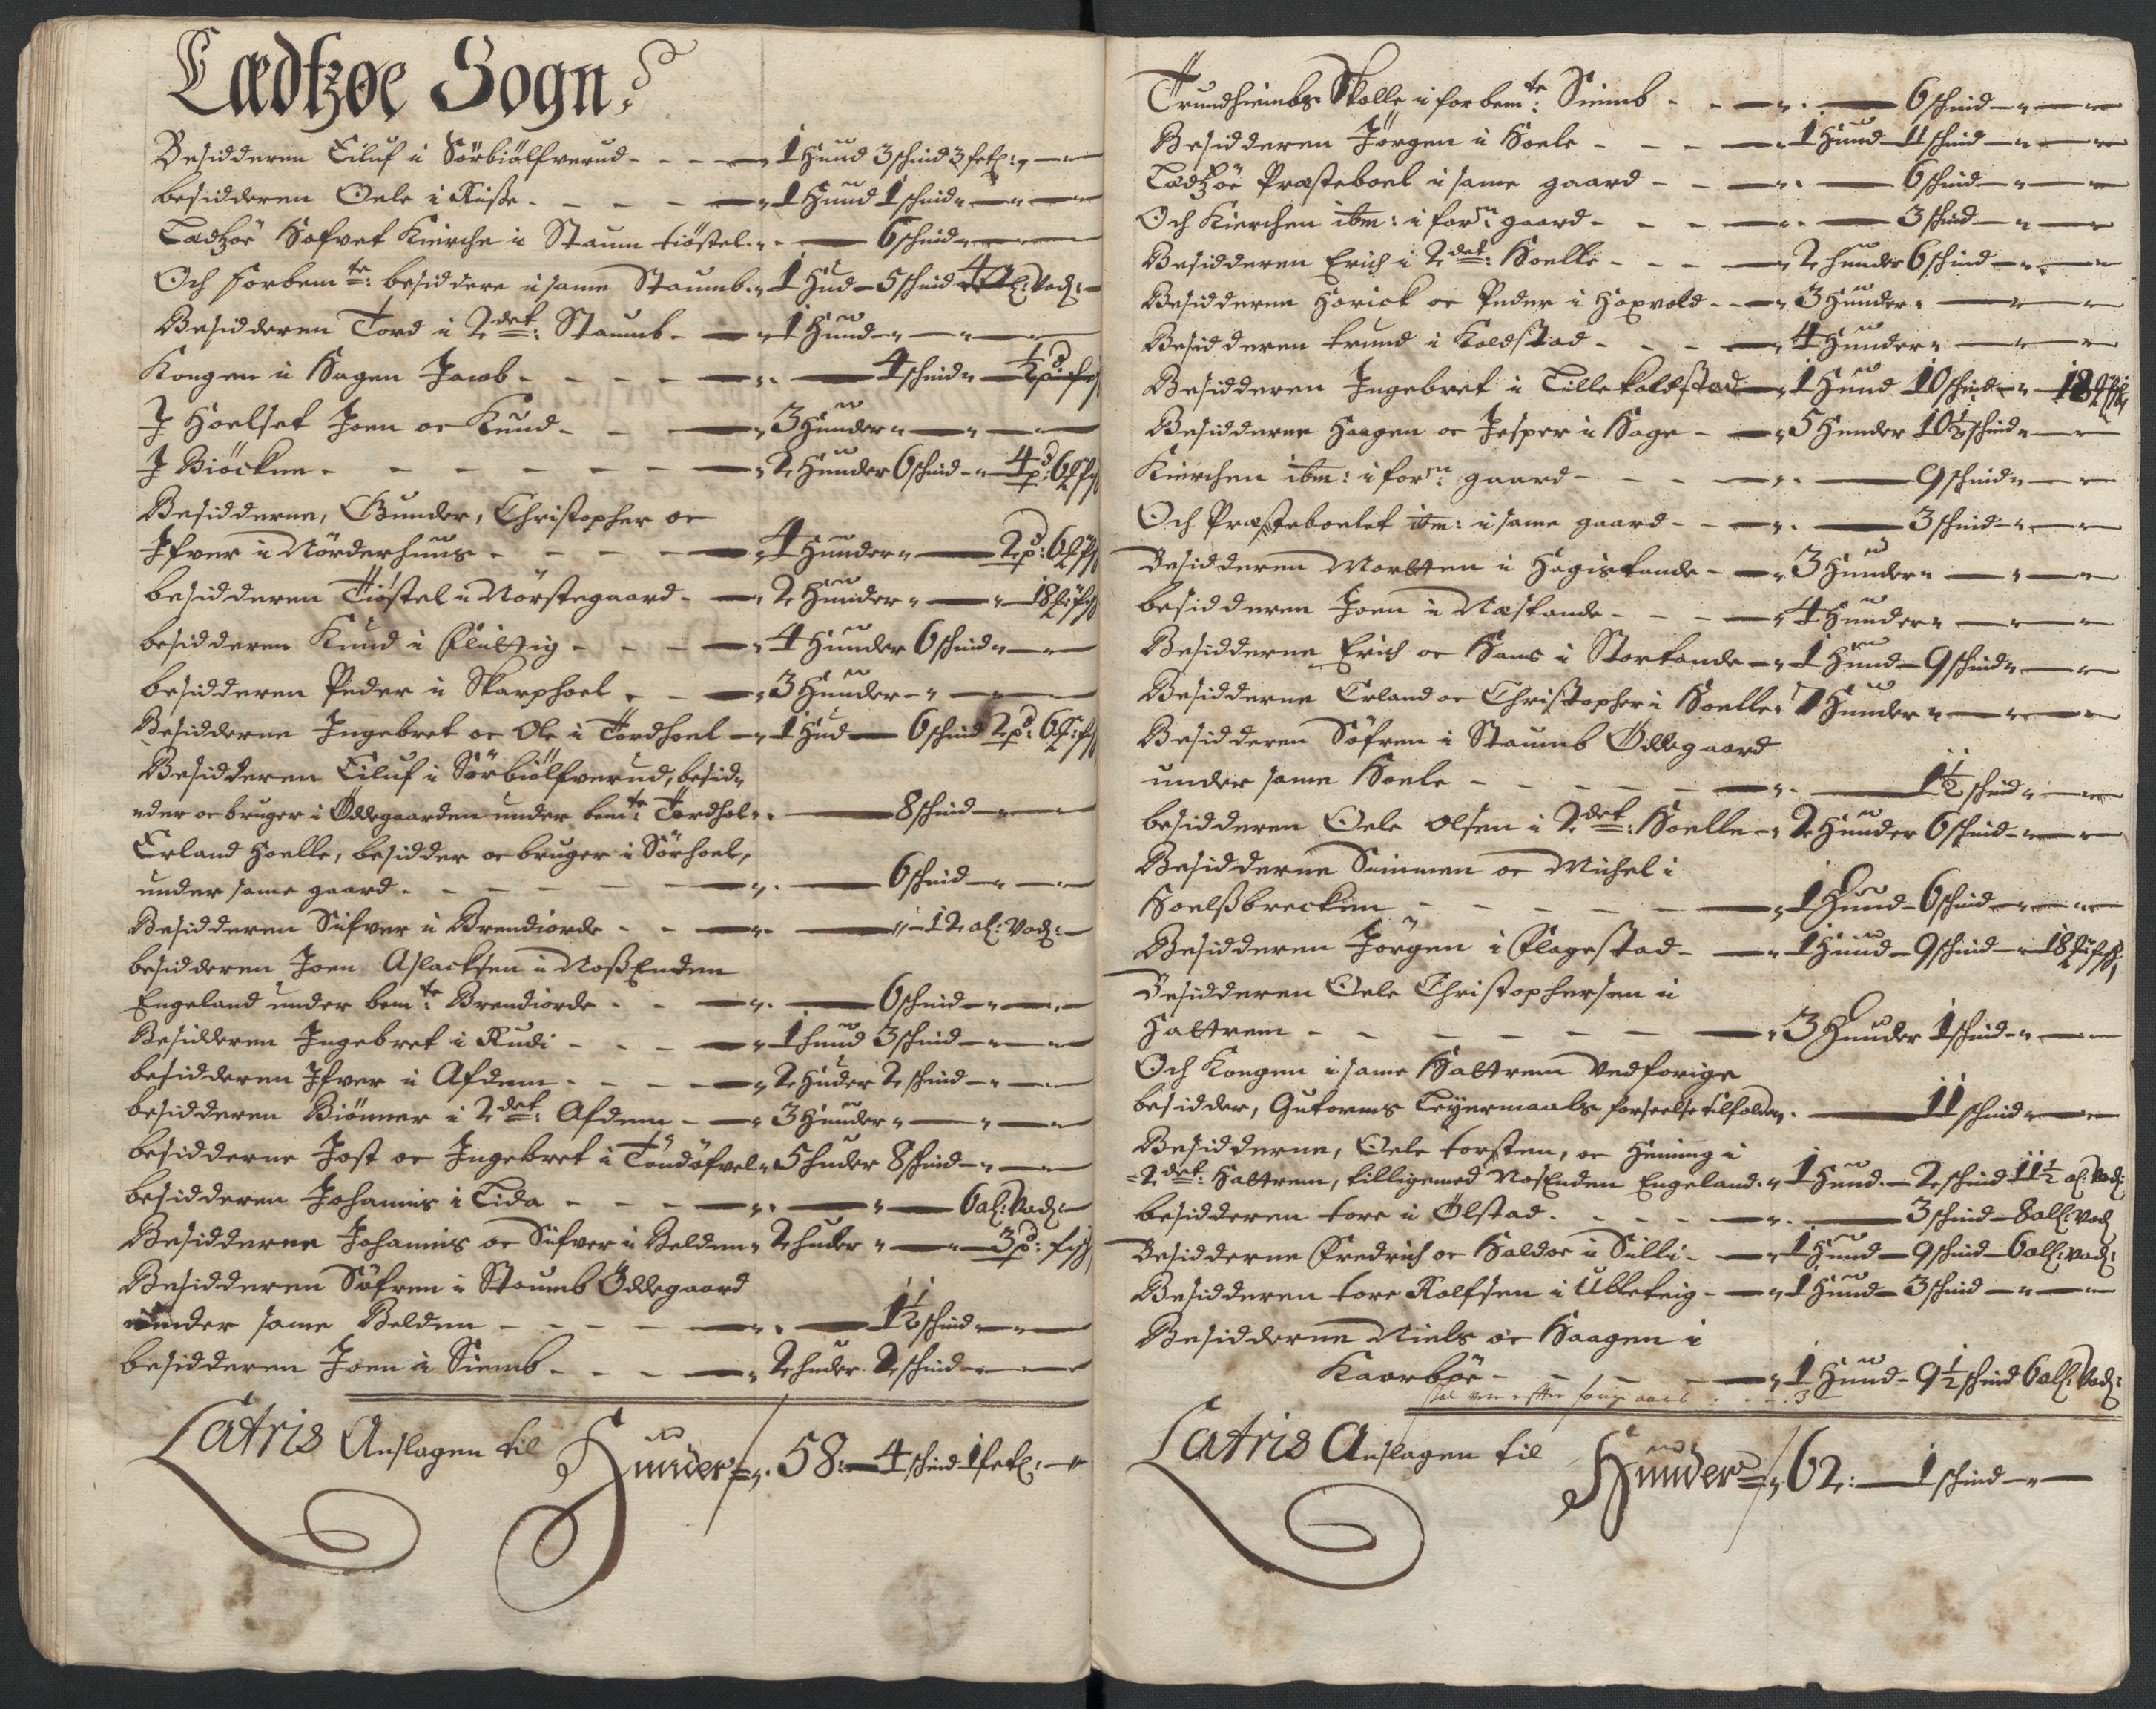 Lædtzøe Sogn.
Besidderen Eiluf i Sörbiölfverud - - - 1 Hund 3 schind 3 fetl:
besidderen Oele i Ruße - - - - 1 Hund 1 schind
Lædtzöe Hofvet Kierche i Staum tiöstel - 6 schind
Och forbemte: besiddere i same Staumb - 1 Hud - 5 schind 4 al: Vadl:
Besidderen Tord i 2det: Staumb - 1 Hund
Kongen i Hagen Jacob - - - - 4 schind ½ pd fisk
J Hoelset Joen oc Knud - - - 3 Hunder
J Biöcknn - - - - - - 2 Hunder 6 schind - 4 pd: 6 fisk
Besidderne, Gunder, Christopher oc
Ifver i Nörderhuus - - - - 4 Hunder - 2 pd: 6
besidderen Tiöstel i Nörstegaard - 2 Hunder - 18
besidderen Knud i Fluttig - - - 4 Hunder 6 schind
besidderen Peder i Skarphoel - - 3 Hunder
Besidderne Ingebret oc Ole i Tordhoel - 1 Hud - 6 schind 2 pd: 6
Besidderen Eiluf i Sörbiölfverud, besid,,
,,der oc bruger i Ödegaarden under bemte: Tordhol - 8 schind
Erland Hoelle, besidder oc bruger i Sörhoel,
under same gaard - - - - - - 6 schind
Besidderen Sifver i Brendiorde - - - 12 al: Vadl:
besidderen Joen Aslacksen i NoßEnden
Engeland under bemte: Brendiorde - - 6 schind
Besidderen Ingebret i Rudi - - - 1 hund 3 schind
besidderen Ifver i Afdem - - - - 2 Huder 2 schind
besidderen Biönner i 2det: Afdem - 3 Hunder
besidderne Jost oc Ingebret i Töndöfvel 5 huder 8 schind
besidderen Johannis i Lida - - - - 6 al: Vadl:
Besidderne Johannis oc Sifver i Belden 2 huder - 3 pd: fisk
Besidderen Söfren i Staumb Öddegaard
under same Belden - - - - 1½ schind
besidderen Joen i Siemb - - - 2 huder 2 schind
Latris Anslagen til Hunder 58: - 4 schind 1 fetl:
Trundhiembs Skolle i forbemte: Siemb - - 6 schind
Besidderen Jörgen i Hoele - - - 1 Hund - 11 schind
Lædtzöe Præsteboel i same gaard - - 6 schind
Och Kierchen ibm: i forn: gaard - - - 3 schind
Besidderen Erich i 2det: Hoelle - - - 2 hunder 6 schind
Besidderne Harick oc Peder i Hoxvold - 3 Hunder
Besidderen trund i Koldstad - - - 4 Hunder
Besidderen Ingebret i Lillekoldstad - 1 Hund 10 schind - 18
Besidderne Haagen oc Jesper i Hage - 5 Hunder 10½ schind
Kierchen ibm: i forn: gaard - - - 9 schind
Och Præsteboelet ibm: i same gaard - - 3 schind
Besidderen Mortten i Hagistande - 3 Hunder
besidderen Joen i Næstande - - - 4 Hunder
Besidderne Erich oc Hans i Storstande - 1 Hund - 9 schind
Besidderne Erland oc Christopher i Hoelle 7 Hunder
Besidderen Söfren i Staumb Öddegaard
under same Hoele - - - - - 1½ schind
besidderen Oele Olsen i 2det: Hoelle - 2 Hunder 6 schind
Besidderne Simmen oc Michel i
Hoelßbrecken - - - - - 1 Hund - 6 schind
Besidderen Jörgen i Flagestad - 1 Hund - 9 schind - 18
Besidderen Oele Christophersen i
Haltrem - - - - - - 3 Hunder 1 schind
Och Kongen i same Haltrem Vedforige
besidder, Gutorms Leyermaals forseelse tilfalden - 11 schind
Besidderne, Oele torsten, oc Henning i
2det: Haltrem, tilligemed NosEnden Engeland 1 Hund - 2 schind 11½ al: Vadl:
besidderen tore i Ölstad - - - - 3 schind - 8 all: Vadl
Besidderne Fredrich oc Haldoe i Silli - 1 Hund - 9 schind - 6 all: Vadl:
Besidderen tore Rolfsen i Ulleteig - 1 Hund - 3 schind
Besidderne Niels oc Haagen i
Kaarböe - - - - - 1 Hund - 9½ schind 6 all: Vadl:
Latris Anslagen til Hunder 62: - 1 schind